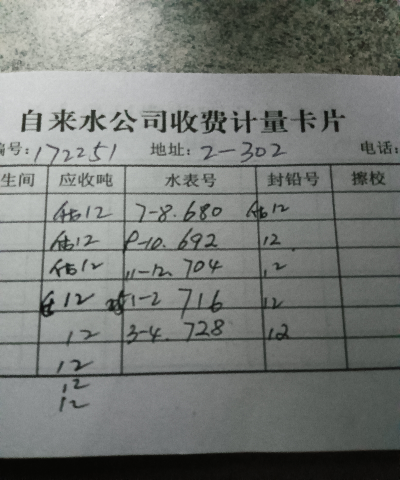 自来水公司收费计量卡片
编号:172251 地址:2-302 电话:
生间 应收吨 水表号 封铅号 擦校
估12 7-8.680 估12
估12 9-10.692 12.
估12 11-12.704 12
12 1-2 716 12
12 3-4.728 12
12
12
12